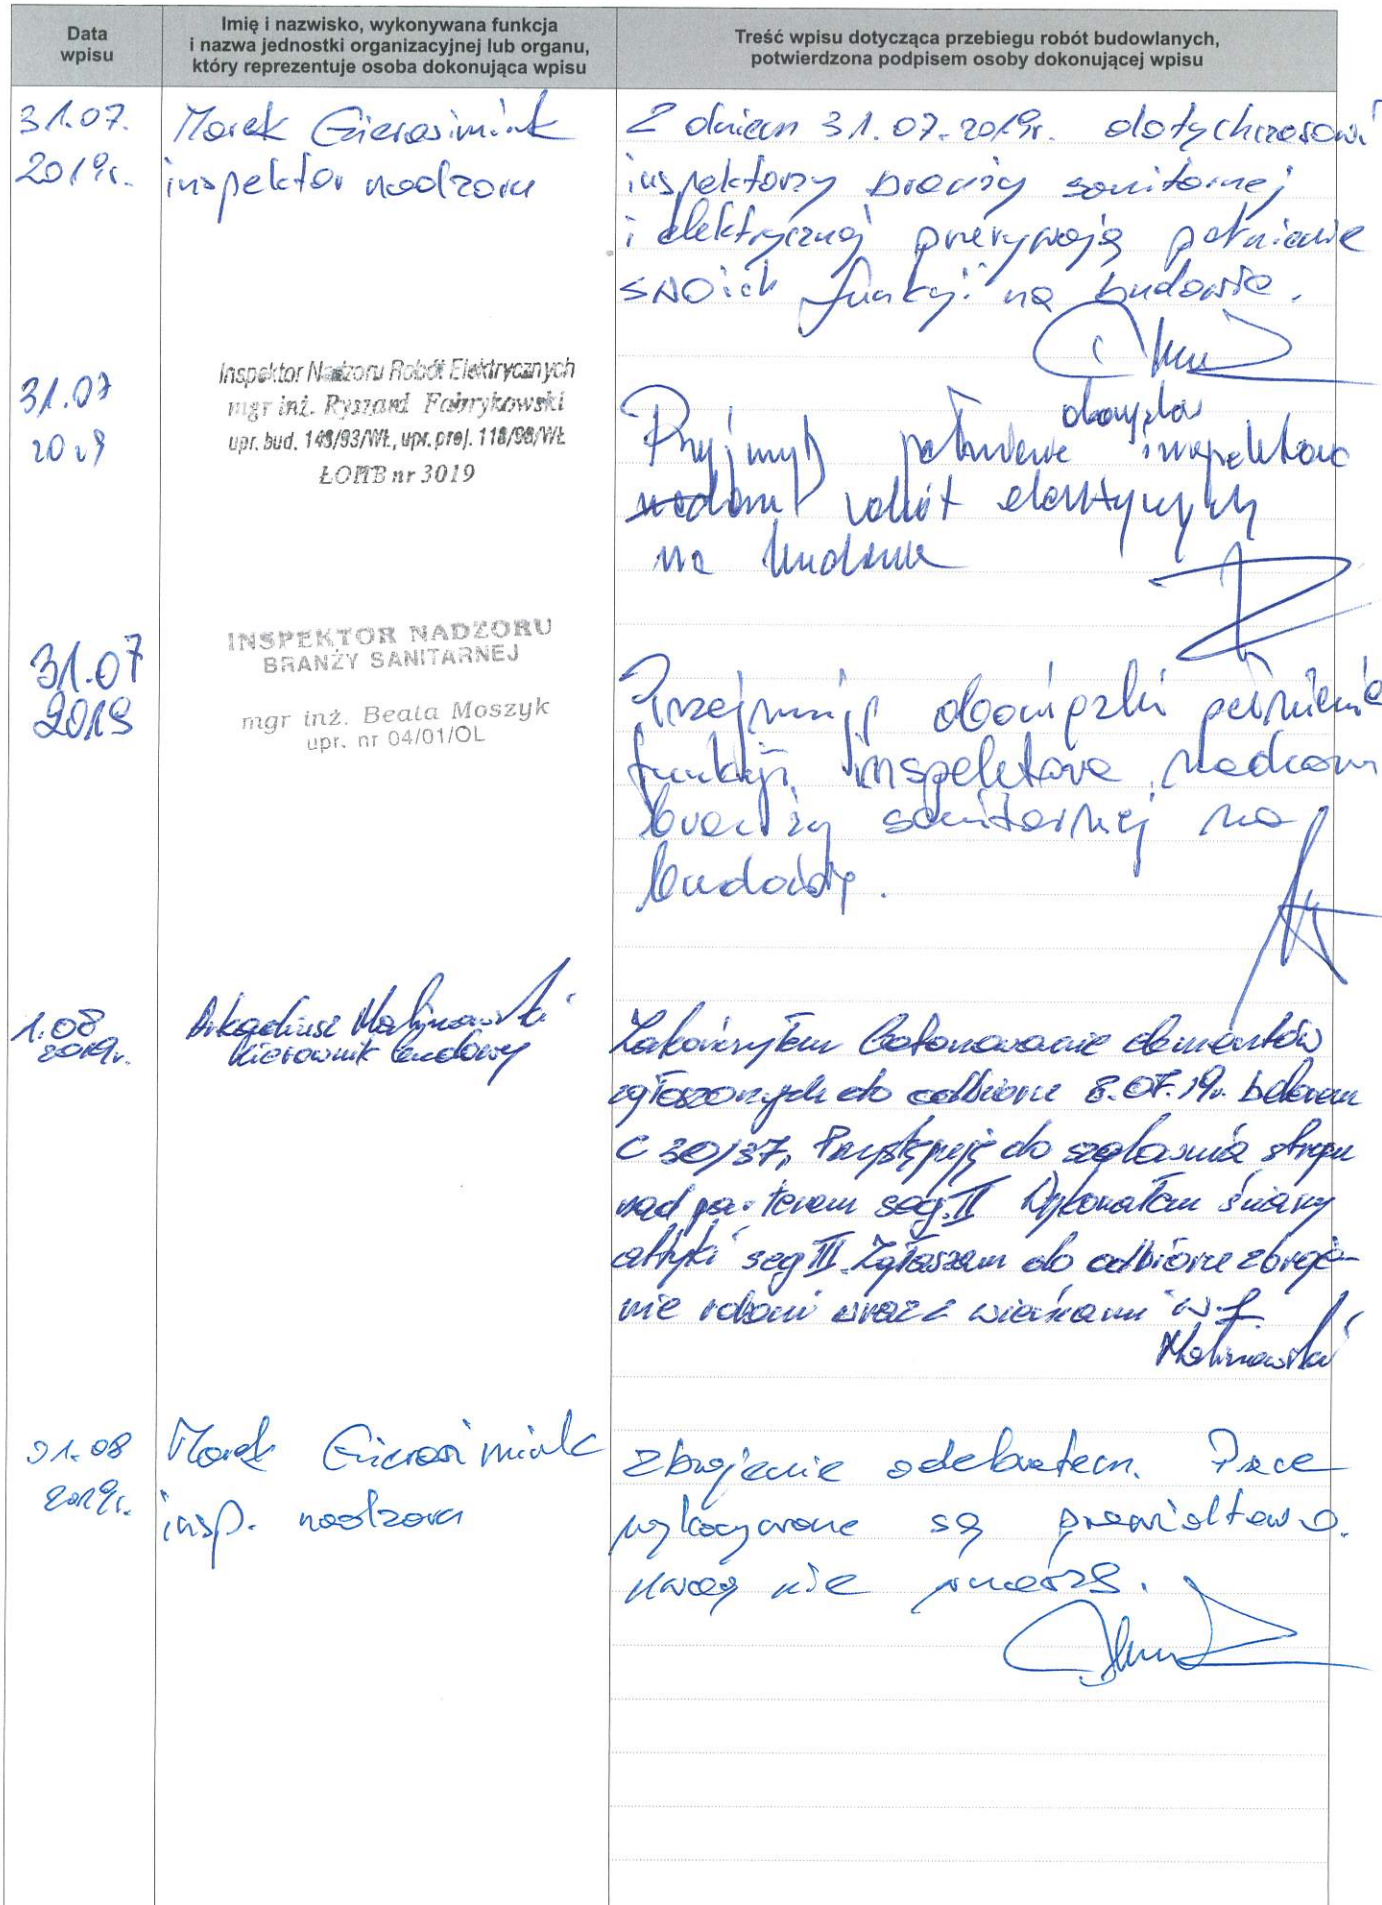 Data
wpisu
Imię i nazwisko, wykonywana funkcja
i nazwa jednostki organizacyjnej lub organu,
który reprezentuje osoba dokonująca wpisu
Treść wpisu dotycząca przebiegu robót budowlanych,
potwierdzona podpisem osoby dokonującej wpisu
31.07.
2019r.
Marek Gierasimiuk
inspektor nadzoru
Z dniem 31.07.2019r. dotychczasowi
inspektorzy branży sanitarnej
i elektrycznej przerywają pełnienie
swoich funkcji na budowie.
31.07
2019
Inspektor Nadzoru Robót Elektrycznych
mgr inż. Ryszard Fabrykowski
upr. bud. 148/93/WŁ, upr. proj. 118/98/WŁ
ŁOIIB nr 3019
Przyjmuję pełnienie inspektora
robót elektrycznych
na budowie
31.07
2019
INSPEKTOR NADZORU
BRANŻY SANITARNEJ
mgr inż. Beata Moszyk
upr. nr 04/01/OL
Przejmuję obowiązki pełnienia
funkcji inspektora nadzoru
branży sanitarnej na
budowie.
1.08
2019r.
Arkadiusz Malinowski
kierownik budowy
Zakończyłem betonowanie elementów
zgłoszonych do odbioru 8.07.19r. betonem
C 30/37, Przystępuję do szalowania stropu
nad parterem seg. II Wykonałem ściany
attyki seg III. Zgłaszam do odbioru zbroje-
nie wraz z wieńcami
Malinowski
01.08
2019r.
Marek Gierasimiuk
insp. nadzoru
Zbrojenie odebrałem. Prace
wykonywane są prawidłowo.
uwag nie wnoszę.